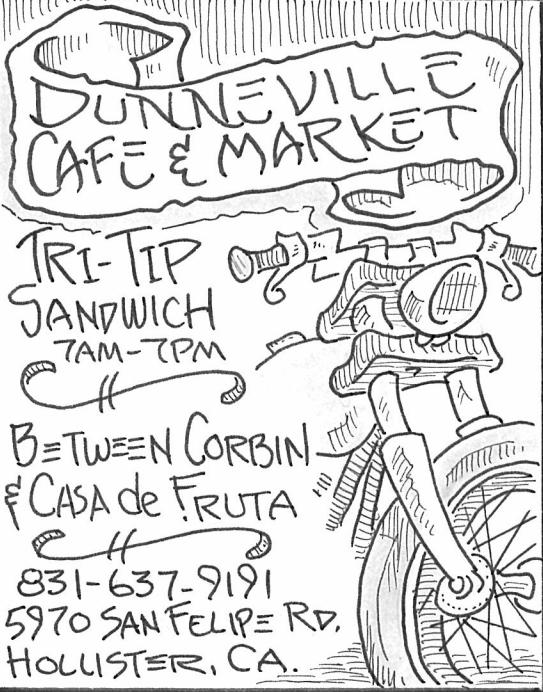 DUNNEVILLE
CAFE & MARKET
TRI-TIP
SANDWICH
7AM-7PM
BETWEEN CORBIN
& CASA de FRUTA
831-637-9191
5970 SAN FELIPE RD.
HOLLISTER, CA.